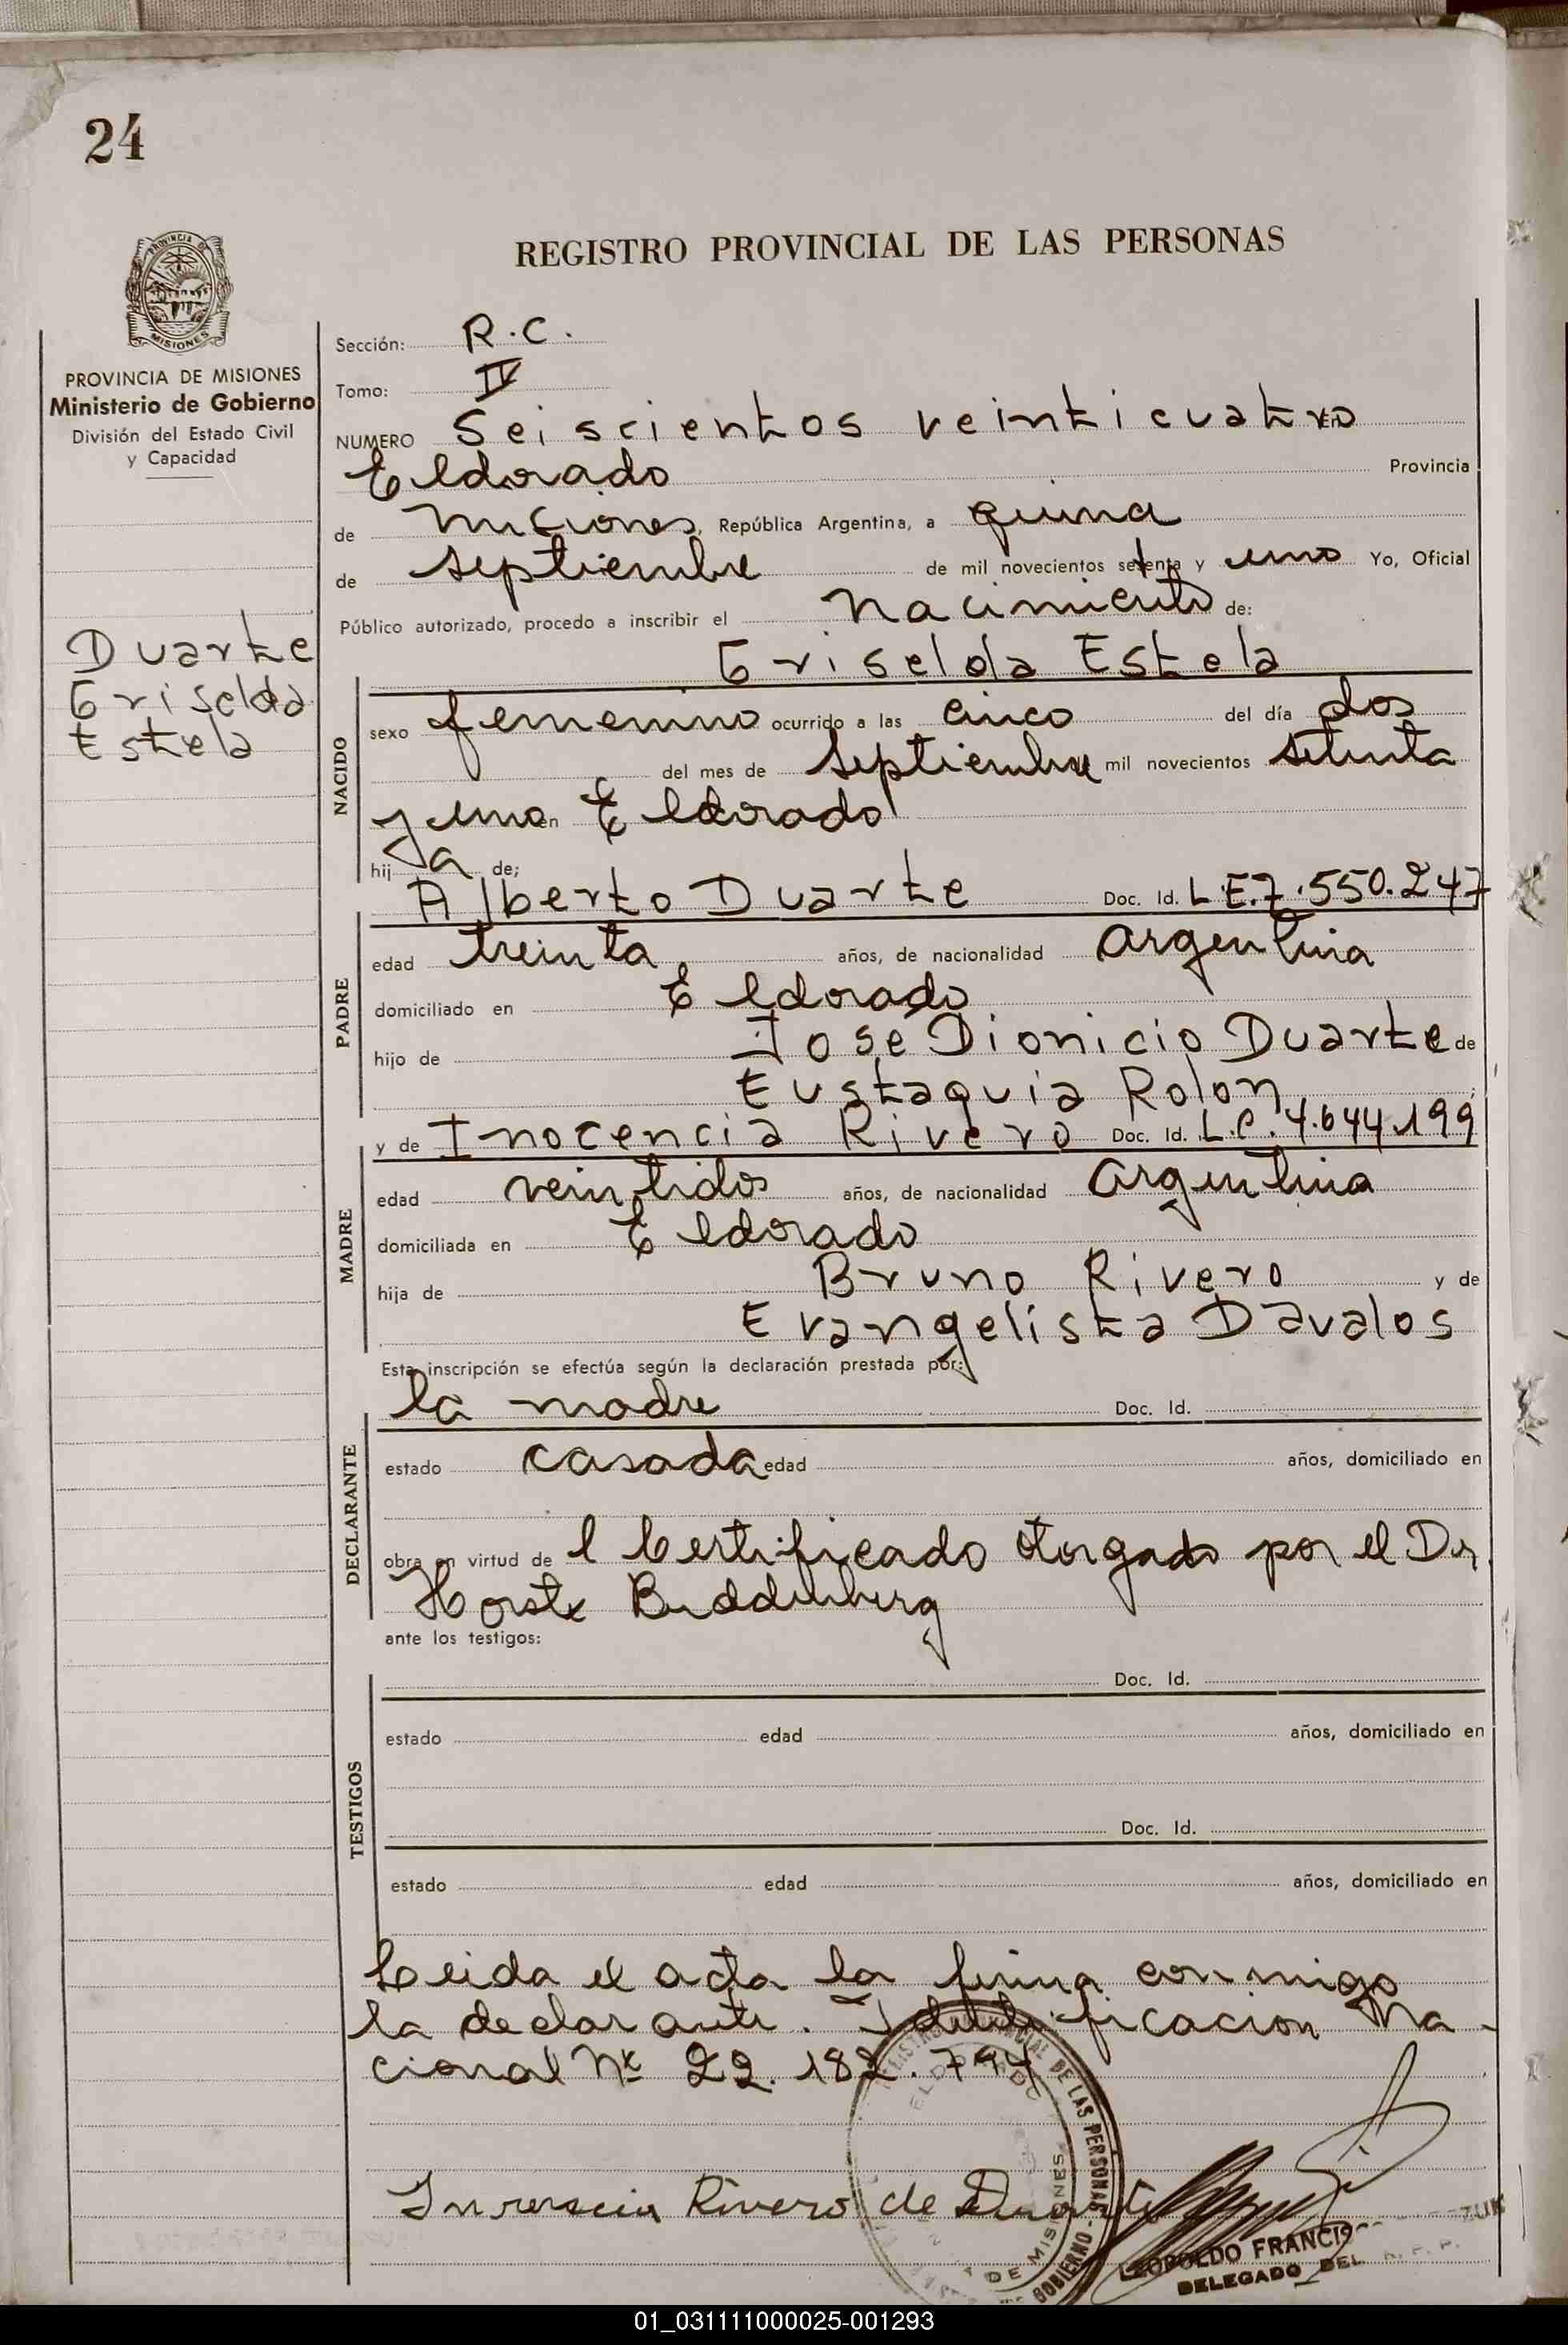 24
REGISTRO PROVINCIAL DE LAS PERSONAS
PROVINCIA DE MISIONES
PROVINCIA DE MISIONES
Ministerio de Gobierno
División del Estado Civil
y Capacidad
Duarte
Griselda
Estela
Sección: R.C.
Tomo: IV
NUMERO Seiscientos veinticuatro En
Eldorado Provincia
de Misiones, República Argentina, a quince
de septiembre de mil novecientos setenta y uno Yo, Oficial
Público autorizado, procedo a inscribir el Nacimiento de:
Griselda Estela
NACIDO
sexo femenino ocurrido a las cinco del día dos
del mes de septiembre mil novecientos setenta
y uno en Eldorado
hij a de;
Alberto Duarte Doc. Id. L E.7.550.247
PADRE
edad treinta años, de nacionalidad argentina
domiciliado en Eldorado
hijo de José Dionicio Duarte de
Eustaquia Rolon
y de Inocencia Rivero Doc. Id. L.C. 4.644.199
MADRE
edad veintidos años, de nacionalidad argentina
domiciliada en Eldorado
hija de Bruno Rivero y de
Evangelista Davalos
Esta inscripción se efectúa según la declaración prestada por:
la madre Doc. Id.
DECLARANTE
estado casada edad años, domiciliado en
obra en virtud de l Certificado otorgado por el Dr.
Horst Buddenberg
ante los testigos:
Doc. Id.
TESTIGOS
estado edad años, domiciliado en
Doc. Id.
estado edad años, domiciliado en
Leida el acta la firma conmigo
la declarante. Identificacion Na-
cional Nº 22.182.794
REGISTRO PROVINCIAL DE LAS PERSONAS - GOBIERNO
ELDORADO
DE MISIONES
Inosencia Rivero de Duarte
LEOPOLDO FRANCISCO
DELEGADO DEL R. P. P.
01_031111000025-001293